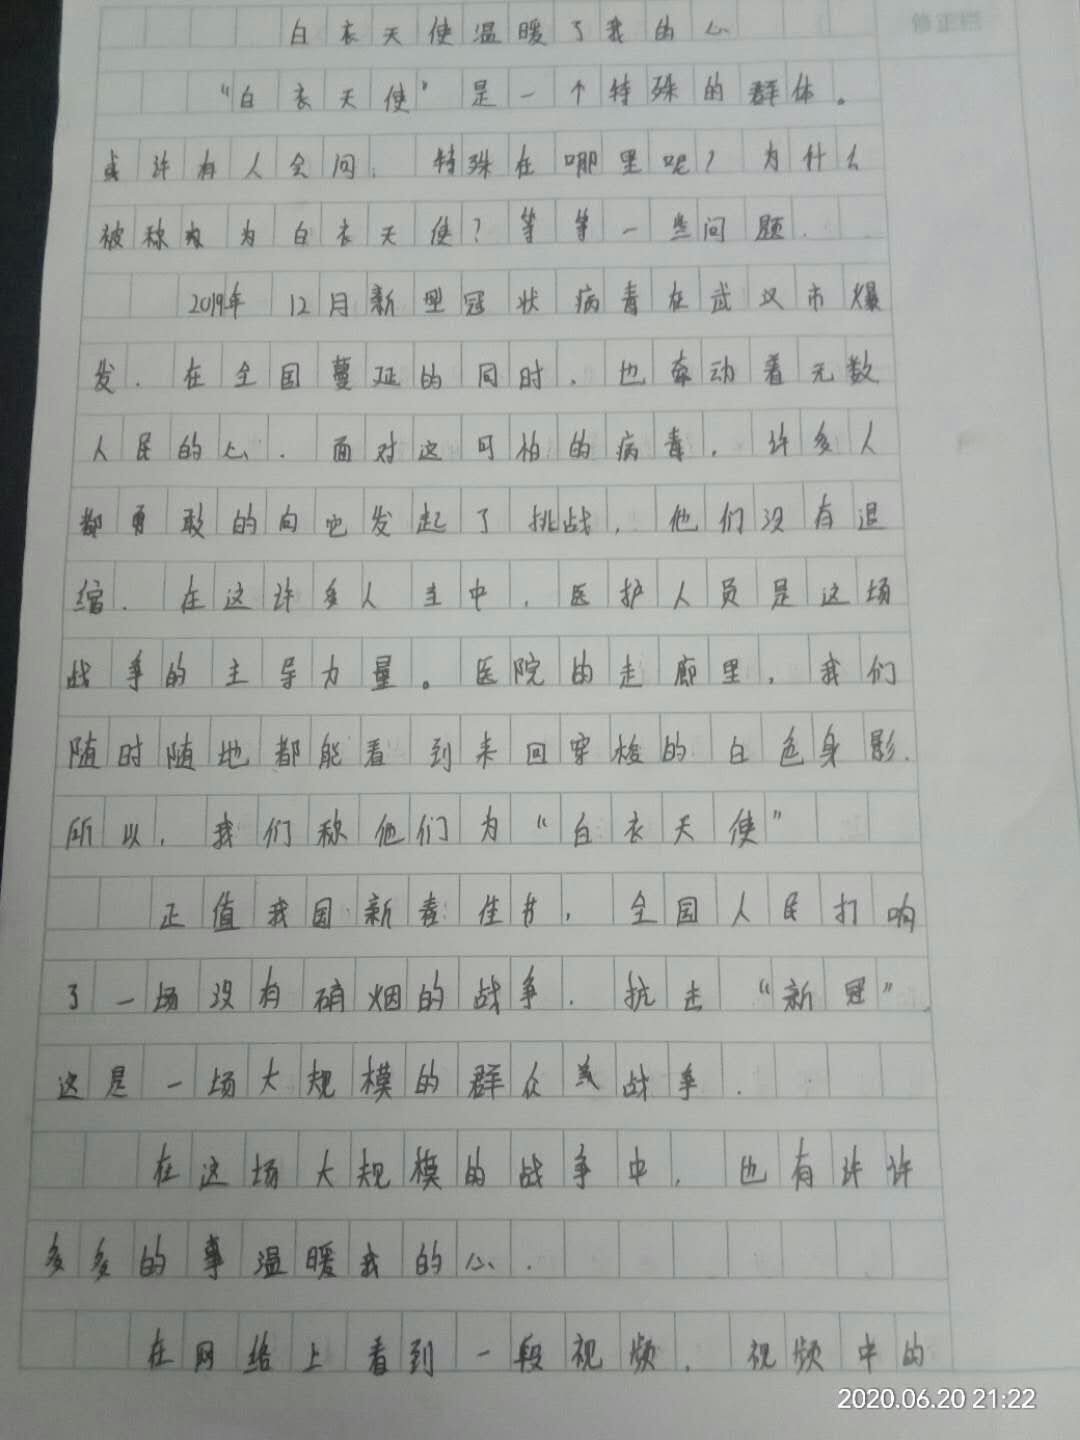 修正栏
白衣天使温暖了我的心
“白衣天使”是一个特殊的群体。
或许有人会问,特殊在哪里呢?为什么
被称为为白衣天使?等等一些问题.
2019年12月新型冠状病青在武汉市爆
发.在全国蔓延的同时,也牵动着无数
人民的心.面对这可怕的病毒,许多人
都勇敢的向它发起了挑战,他们没有退
缩.在这许多人主中,医护人员是这场
战争的主导力量。医院的走廊里,我们
随时随地都能看到来回穿梭的白色身影.
所以,我们称他们为“白衣天使”
正值我国新春佳节,全国人民打响
了一场没有硝烟的战争.抗击“新冠”,
这是一场大规模的群众式战争.
在这场大规模的战争中,也有许许
多多的事温暖我的心.
在网络上看到一段视频.视频中的
2020.06.20 21:22